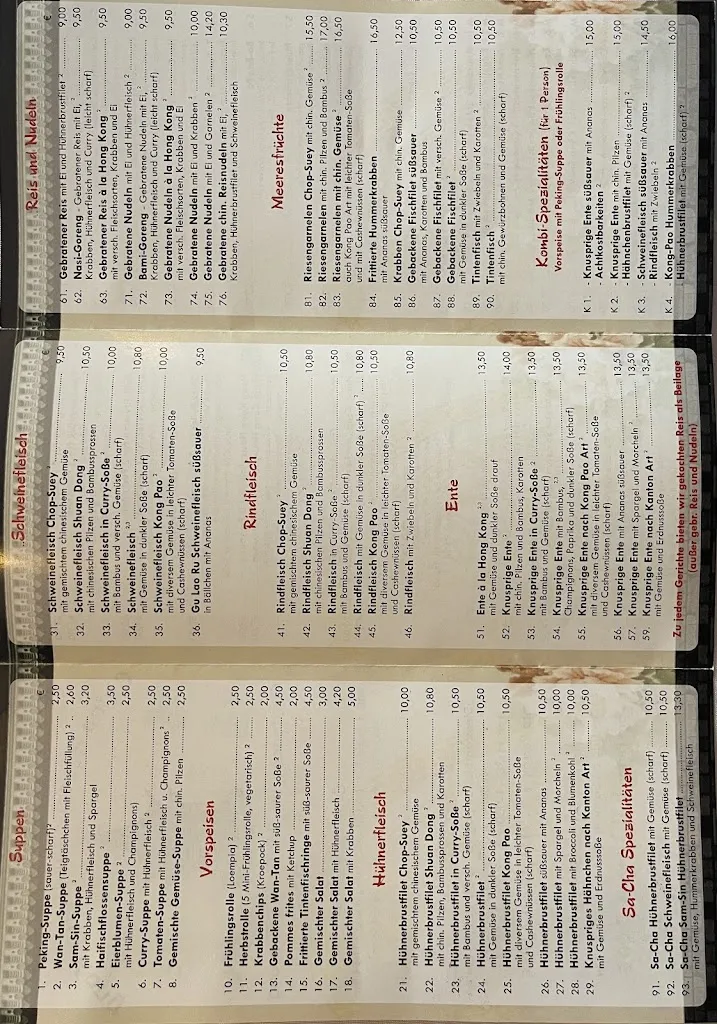 Suppen
€
1. Peking-Suppe (sauer-scharf)² 2,50
2. Wan-Tan-Suppe (Teigtäschchen mit Fleischfüllung) ² 2,60
3. Sam-Sin-Suppe ² 3,20
mit Krabben, Hühnerfleisch und Spargel
4. Haifischflossensuppe ² 3,50
5. Eierblumen-Suppe ² 2,50
mit Hühnerfleisch und Champignons)
6. Curry-Suppe mit Hühnerfleisch) ² 2,50
7. Tomaten-Suppe mit Hühnerfleisch u. Champignons ² 2,50
8. Gemischte Gemüse-Suppe mit chin. Pilzen 2,50
Vorspeisen
10. Frühlingsrolle (Loempia) ² 2,50
11. Herbstrolle (5 Mini-Frühlingsrolle, vegetarisch) ² 2,50
12. Krabbenchips (Kroepock) ² 2,00
13. Gebackene Wan-Tan mit süß-saurer Soße ² 4,50
14. Pommes frites mit Ketchup 2,00
15. Frittierte Tintenfischringe mit süß-saurer Soße 4,50
16. Gemischter Salat 3,00
17. Gemischter Salat mit Hühnerfleisch 4,20
18. Gemischter Salat mit Krabben 5,00
Hühnerfleisch
21. Hühnerbrustfilet Chop-Suey ² 10,00
mit gemischtem chinesischem Gemüse
22. Hühnerbrustfilet Shuan Dong ² 10,80
mit chin. Pilzen, Bambussprossen und Karotten
23. Hühnerbrustfilet in Curry-Soße ² 10,50
mit Bambus und versch. Gemüse (scharf)
24. Hühnerbrustfilet ² 10,50
mit Gemüse in dunkler Soße (scharf)
25. Hühnerbrustfilet Kong Pao 10,50
mit diversem Gemüse in leichter Tomaten-Soße
und Cashewnüssen (scharf)
26. Hühnerbrustfilet süßsauer mit Ananas 10,50
27. Hühnerbrustfilet mit Spargel und Morcheln ² 10,00
28. Hühnerbrustfilet mit Broccoli und Blumenkohl ² 10,00
29. Knuspriges Hähnchen nach Kanton Art ² 10,50
mit Gemüse und Erdnusssoße
Sa-Cha Spezialitäten
91. Sa-Cha Hühnerbrustfilet mit Gemüse (scharf) 10,50
92. Sa-Cha Schweinefleisch mit Gemüse (scharf) 10,50
93. Sa-Cha Sam-Sin Hühnerbrustfilet 13,30
mit Gemüse, Hummerkrabben und Schweinefleisch
Schweinefleisch
€
31. Schweinefleisch Chop-Suey 9,50
mit gemischtem chinesischem Gemüse
32. Schweinefleisch Shuan Dong ² 10,50
mit chinesischen Pilzen und Bambussprossen
33. Schweinefleisch in Curry-Soße ² 10,00
mit Bambus und versch. Gemüse (scharf)
34. Schweinefleisch 10,80
mit Gemüse in dunkler Soße (scharf)
35. Schweinefleisch Kong Pao ² 10,00
mit diversem Gemüse in leichter Tomaten-Soße
und Cashewnüssen (scharf)
36. Gu Lao Ru Schweinefleisch süßsauer 9,50
in Bällchen mit Ananas
Rindfleisch
41. Rindfleisch Chop-Suey 10,50
mit gemischtem chinesischem Gemüse
42. Rindfleisch Shuan Dong ² 10,80
mit chinesischen Pilzen und Bambussprossen
43. Rindfleisch in Curry-Soße ² 10,50
mit Bambus und Gemüse (scharf)
44. Rindfleisch mit Gemüse in dunkler Soße (scharf) ² 10,80
45. Rindfleisch Kong Pao ² 10,50
mit diversem Gemüse in leichter Tomaten-Soße
und Cashewnüssen (scharf)
46. Rindfleisch mit Zwiebeln und Karotten ² 10,80
Ente
51. Ente à la Hong Kong 13,50
mit Gemüse und dunkler Soße drauf
52. Knusprige Ente ² 14,00
mit chin. Pilzen und Bambus, Karotten
53. Knusprige Ente in Curry-Soße ² 13,50
mit Bambus und Gemüse (scharf)
54. Knusprige Ente mit Bambus, ² 13,50
Champignons, Paprika und dunkler Soße (scharf)
55. Knusprige Ente nach Kong Pao Art ² 13,50
mit diversem Gemüse in leichter Tomaten-Soße
und Cashewnüssen (scharf)
56. Knusprige Ente mit Ananas süßsauer 13,50
57. Knusprige Ente mit Spargel und Morcheln ² 13,50
59. Knusprige Ente nach Kanton Art ² 13,50
mit Gemüse und Erdnusssoße
Zu jedem Gerichte bieten wir gekochten Reis als Beilage
(außer gebr. Reis und Nudeln)
Reis und Nudeln
€
61. Gebratener Reis mit Ei und Hühnerbrustfilet ² 9,00
62. Nasi-Goreng - Gebratener Reis mit Ei, 9,50
Krabben, Hühnerfleisch und Curry (leicht scharf)
63. Gebratener Reis à la Hong Kong ² 9,50
mit versch. Fleischsorten, Krabben und Ei
71. Gebratene Nudeln mit Ei und Hühnerfleisch ² 9,00
72. Bami-Goreng - Gebratene Nudeln mit Ei, 9,50
Krabben, Hühnerfleisch und Curry (leicht scharf)
73. Gebratene Nudeln à la Hong Kong 9,50
mit versch. Fleischsorten, Krabben und Ei
74. Gebratene Nudeln mit Ei und Krabben ² 10,00
75. Gebratene Nudeln mit Ei und Garnelen ² 14,20
76. Gebratene chin. Reisnudeln mit Ei, 10,30
Krabben, Hühnerbrustfilet und Schweinefleisch
Meeresfrüchte
81. Riesengarnelen Chop-Suey mit chin. Gemüse ² 15,50
82. Riesengarnelen mit chin. Pilzen und Bambus ² 17,00
83. Riesengarnelen mit chin. Gemüse ² 16,50
auch Kong Pao Art mit leichter Tomaten-Soße
und mit Cashewnüssen (scharf)
84. Frittierte Hummerkrabben 16,50
mit Ananas süßsauer
85. Krabben Chop-Suey mit chin. Gemüse 12,50
86. Gebackene Fischfilet süßsauer 10,50
mit Ananas, Karotten und Bambus
87. Gebackene Fischfilet mit versch. Gemüse ² 10,50
88. Gebackene Fischfilet ² 10,50
mit Gemüse in dunkler Soße (scharf)
89. Tintenfisch mit Zwiebeln und Karotten ² 10,50
90. Tintenfisch ² 10,50
mit chin. Gewürzbohnen und Gemüse (scharf)
Kombi-Spezialitäten (für 1 Person)
Vorspeise mit Peking-Suppe oder Frühlingsrolle
K 1. - Knusprige Ente süßsauer mit Ananas 15,00
- Achtkostbarkeiten ²
K 2. - Knusprige Ente mit chin. Pilzen 15,00
- Hähnchenbrustfilet mit Gemüse (scharf) ²
K 3. - Schweinefleisch süßsauer mit Ananas 14,50
- Rindfleisch mit Zwiebeln ²
K 4. - Kong-Pao Hummerkrabben 16,00
- Hühnerbrustfilet mit Gemüse (scharf) ²